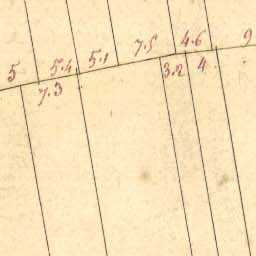 5 5.4 5.1 7.5 4.6 9
7.3 3.2 4